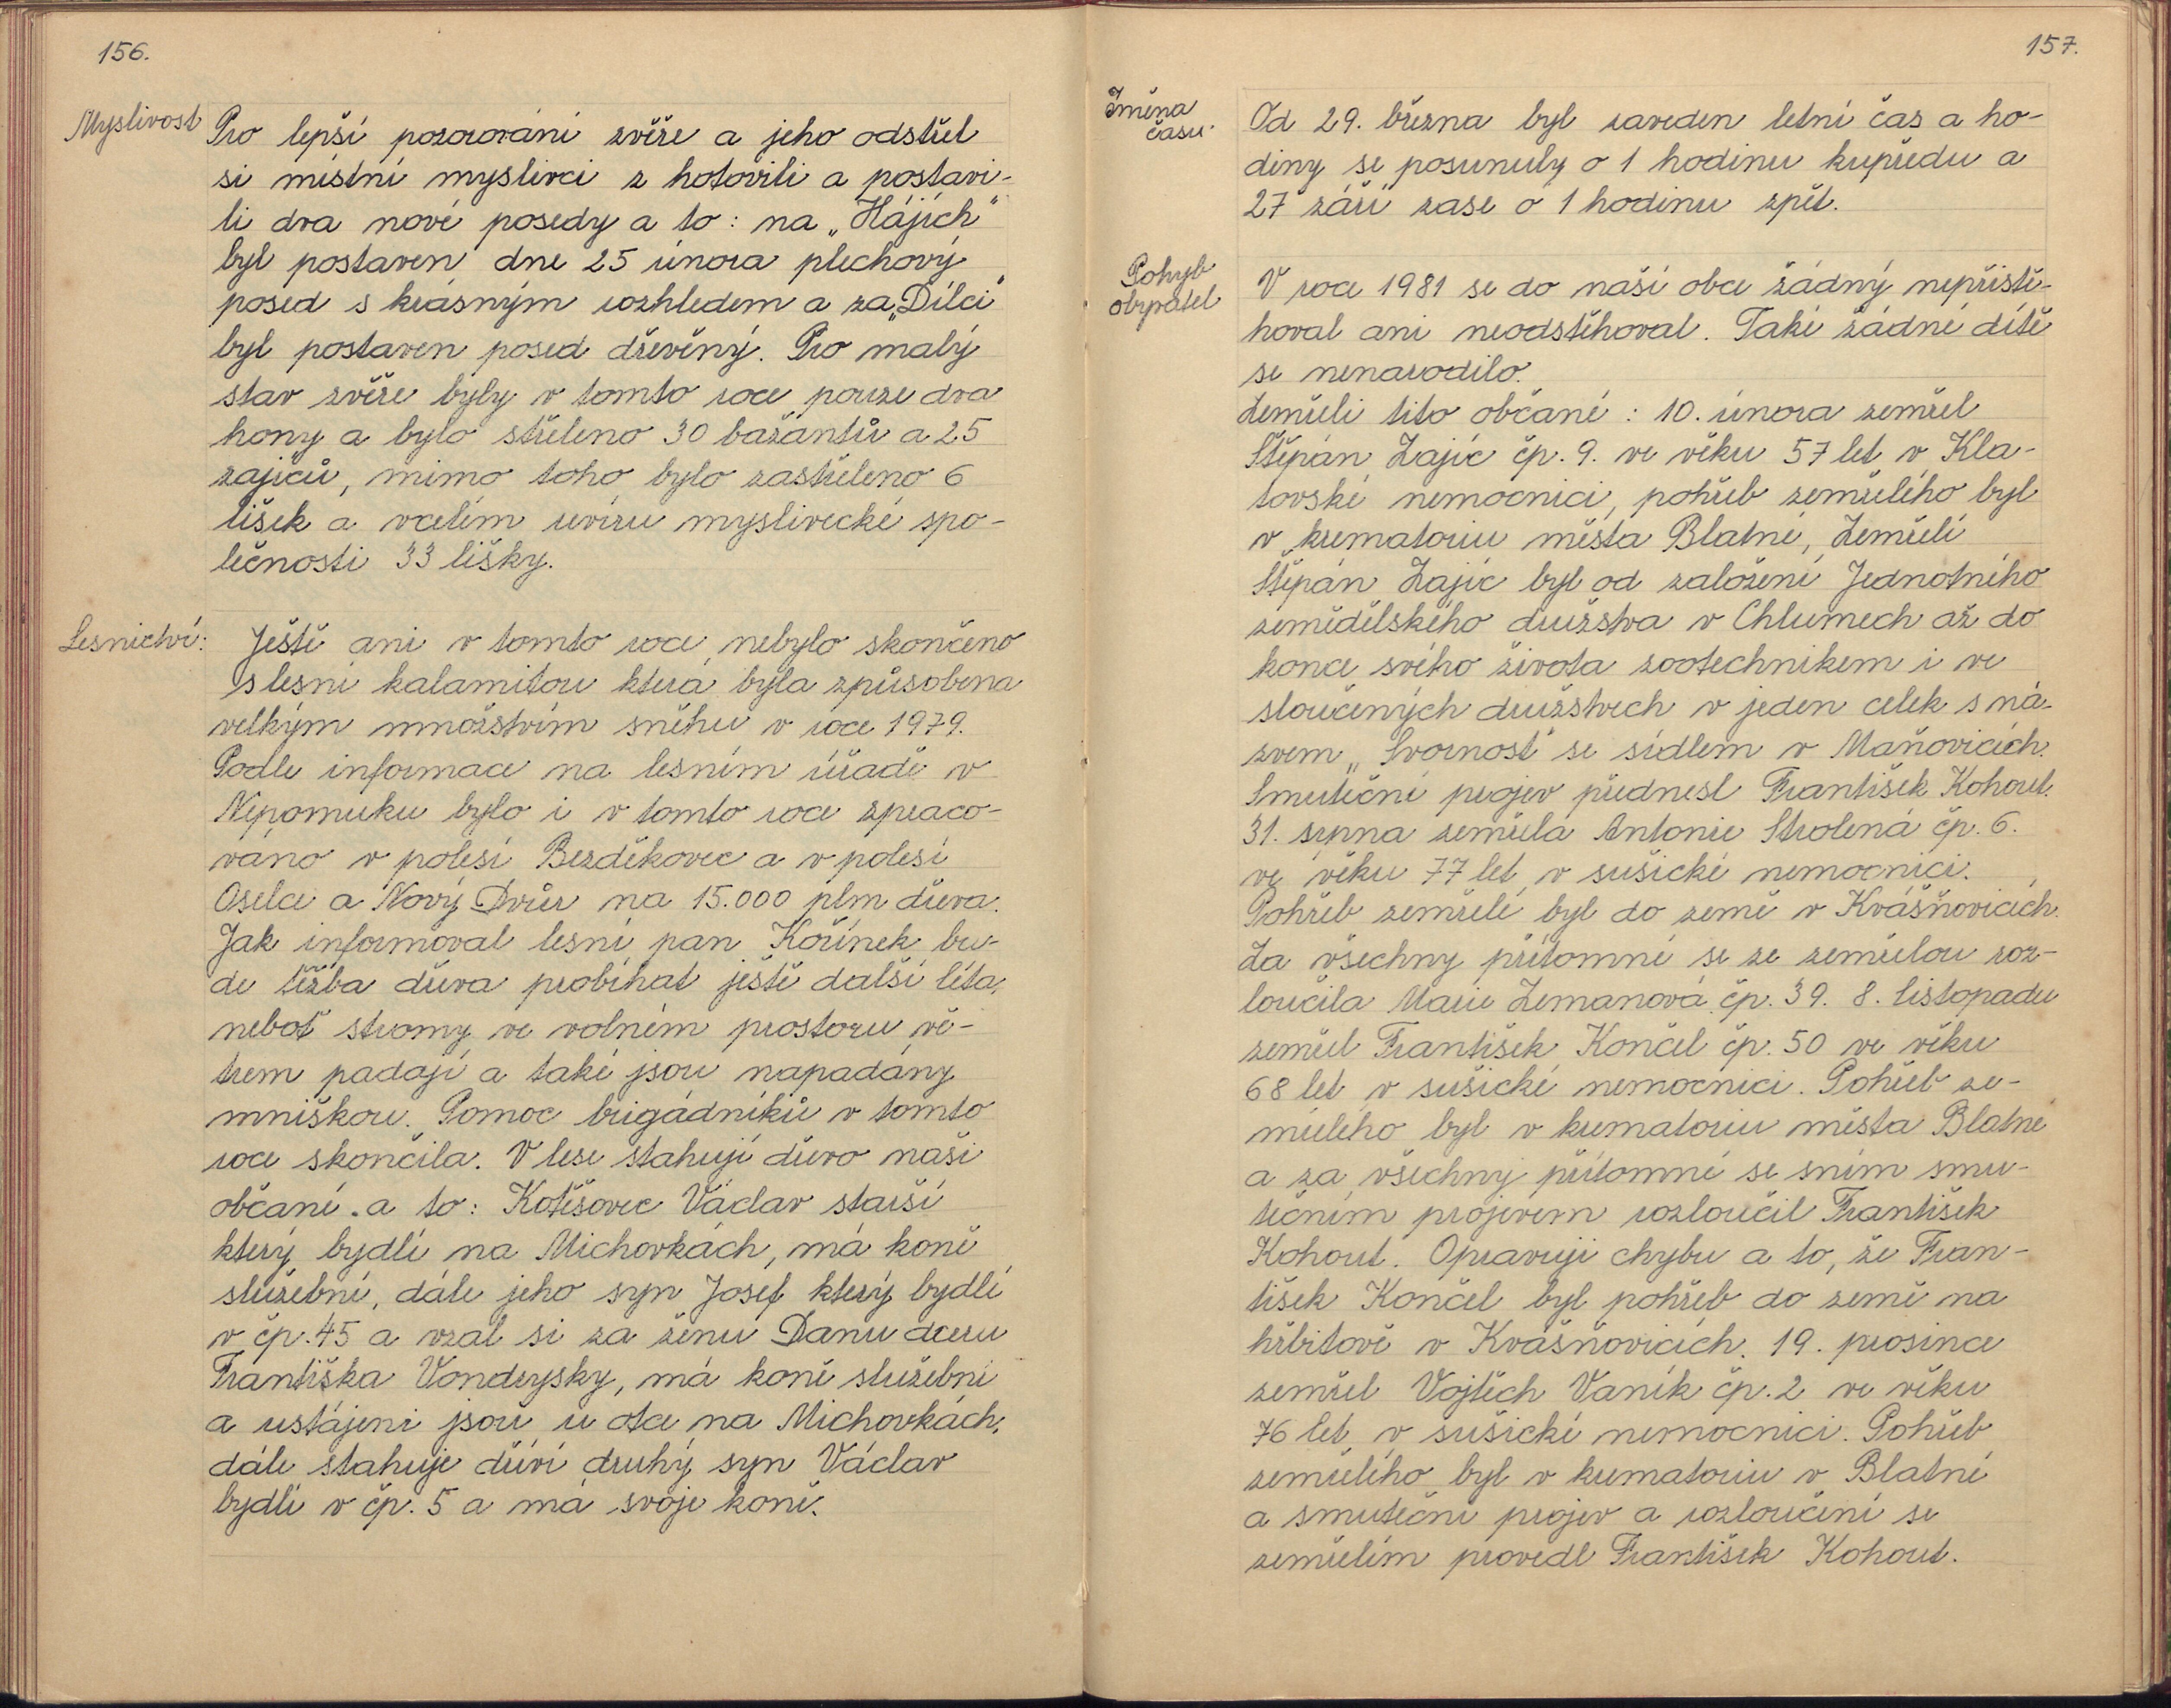 156.
Myslivost
Pro lepší pozorování zvěře a jeho odstřel
si místní myslivci z hotovili a postavi-
li dva nové posedy a to: na „Hájích"
byl postaven dne 25 února plechový
posed s krásným rozhledem a za „Dílci"
byl postaven posed dřevěný. Pro malý
stav zvěře byly v tomto roce pouze dva
hony a bylo střeleno 30 bažantů a 25
zajíců, mimo toho bylo zastřeleno 6
lišek a vcelém revíru myslivecké spo-
lečnosti 33 lišky.
Lesnictví:
Ještě ani v tomto roce nebylo skončeno
s lesní kalamitou která byla způsobena
velkým množstvím sněhu v roce 1979.
Podle informace na lesním úřadě v
Nepomuku bylo i v tomto roce zpraco-
váno v polesí Bezděkovec a v polesí
Oselce a Nový Dvůr na 15.000 plm dřeva.
Jak informoval lesní pan Kořínek bu-
de těžba dřeva probíhat ještě další léta,
neboť stromy ve volném prostoru vě-
trem padají a také jsou napadány
mniškou. Pomoc brigádníků v tomto
roce skončila. V lese stahují dřevo naši
občané a to: Kotěšovec Václav starší
který bydlí na Michovkách, má koně
služební, dále jeho syn Josef který bydlí
v čp. 45 a vzal si za ženu Danu dceru
Františka Vondrysky, má koně služební
a ustájeni jsou u otce na Michovkách,
dále stahuje dříví druhý syn Václav
bydlí v čp. 5 a má svoje koně.
157.
Změna
času.
Od 29. března byl zaveden letní čas a ho-
diny se posunuly o 1 hodinu kupředu a
27 září zase o 1 hodinu zpět.
Pohyb
obyvatel
V roce 1981 se do naší obce žádný nepřistě-
hoval ani neodstěhoval. Také žádné dítě
se nenarodilo.
Zemřeli tito občané: 10. února zemřel
Štěpán Zajíc čp. 9. ve věku 57 let v Kla-
tovské nemocnici, pohřeb zemřelého byl
v krematoriu města Blatné, Zemřelí
Štěpán Zajíc byl od založení Jednotného
zemědělského družstva v Chlumech až do
konce svého života zootechnikem i ve
sloučených družstvech v jeden celek s ná-
zvem „Svornost" se sídlem v Maňovicích.
Smuteční projev přednesl František Kohout.
31. srpna zemřela Antonie Strolená čp. 6.
ve věku 77 let v sušické nemocnici.
Pohřeb zemřelé byl do země v Kvášňovicích.
Za všechny přítomné se ze zemřelou roz-
loučila Marie Zemanová čp. 39. 8. listopadu
zemřel František Končel čp. 50 ve věku
68 let v sušické nemocnici. Pohřeb ze-
mřelého byl v krematoriu města Blatné
a za všechny přítomné se sním smu-
tečním projevem rozloučil František
Kohout. Opravuji chybu a to, že Fran-
tišek Končel byl pohřeb do země na
hřbitově v Kvášňovicích. 19. prosince
zemřel Vojtěch Vaník čp. 2 ve věku
76 let v sušické nemocnici. Pohřeb
zemřelého byl v krematoriu v Blatné
a smuteční projev a rozloučení se
zemřelím provedl František Kohout.